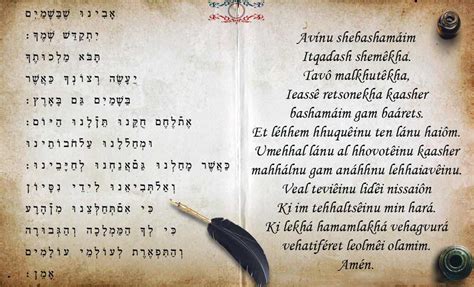 אָבִינוּ שֶׁבַּשָּׁמַיִם
יִתְקַדֵּשׁ שְׁמֶךָ:
תָּבֹא מַלְכוּתֶךָ
יֵעָשֶׂה רְצוֹנְךָ כַּאֲשֶׁר
בַּשָּׁמַיִם גַּם בָּאָרֶץ:
אֶת־לֶחֶם חֻקֵּנוּ תֶּן־לָנוּ הַיּוֹם:
וּמְחַל־לָנוּ עַל־חוֹבוֹתֵינוּ
כַּאֲשֶׁר מָחַלְנוּ גַּם־אֲנַחְנוּ לְחַיָּבֵינוּ:
וְאַל־תְּבִיאֵנוּ לִידֵי נִסָּיוֹן
כִּי אִם־תְּחַלְּצֵנוּ מִן־הָרָע
כִּי לְךָ הַמַּמְלָכָה וְהַגְּבוּרָה
וְהַתִּפְאֶרֶת לְעוֹלְמֵי עוֹלָמִים
אָמֵן:
Avínu shebashamáim
Itqadash shemêkha.
Tavô malkhutêkha,
Ieassê retsonekha kaasher
bashamáim gam baárets.
Et léhhem hhuquêinu ten lánu haiôm.
Umehhal lánu al hhovotêinu kaasher
mahhálnu gam anáhhnu lehhaiavêinu.
Veal teviêinu lidêi nissaiôn
Ki im tehhaltsêinu min hará.
Ki lekhá hamamlakhá vehagvurá
vehatiféret leolmêi olamim.
Amén.